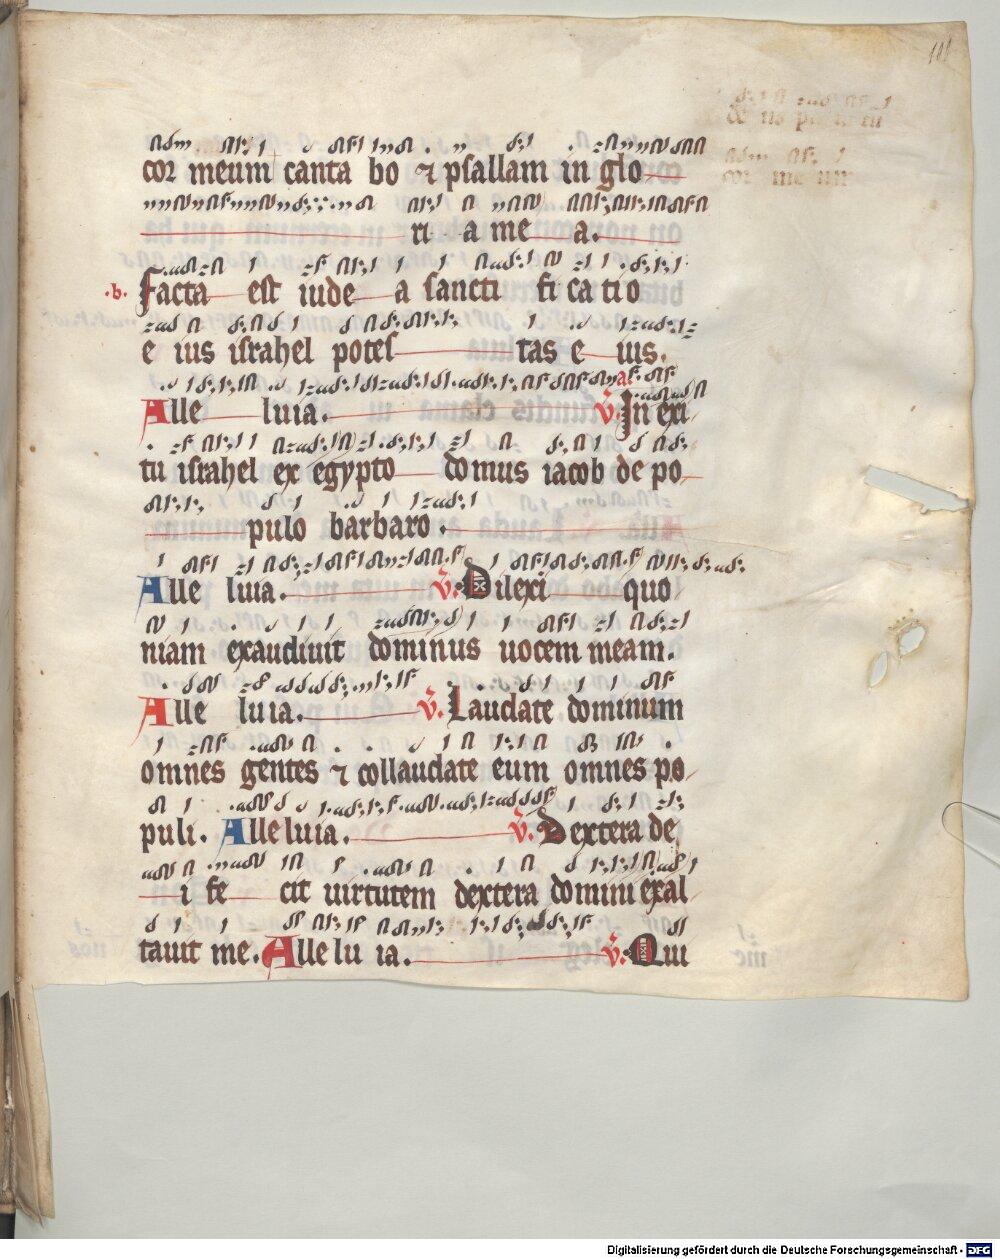 cor meum canta bo ⁊ psallam in glo
ri a me a.
.b. Facta est iude a sancti fi ca tio
e ius israhel potes tas e ius.
Alle luia. a. V̄. In exi
tu israhel ex egypto domus iacob de po
pulo barbaro.
Alle luia. V̄. Dilexi quo
niam exaudiuit dominus uocem meam.
Alle luia. V̄. Laudate dominum
omnes gentes ⁊ collaudate eum omnes po
puli. Alleluia. V̄. Dextera de
i fe cit uirtutem dextera domini exal
tauit me. Allelu ia. V̄. Qui
cor me um
Digitalisierung gefördert durch die Deutsche Forschungsgemeinschaft - DFG